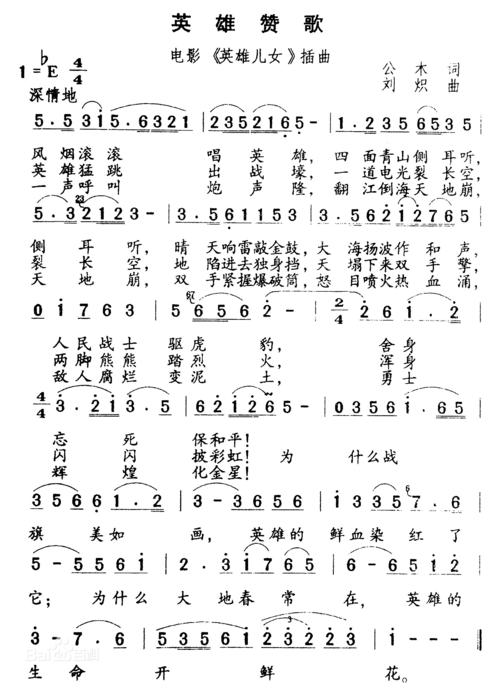 英雄赞歌
电影《英雄儿女》插曲
1=♭E 4/4
公木 词
刘炽 曲
深情地
5.5315.6321 | 2352165- | 1.2356535 |
风烟滚滚 唱英雄,四面青山侧耳听,
英雄猛跳 出战壕,一道电光裂长空,
一声呼叫 炮声隆,翻江倒海天地崩,
5.32123- | 3.561153 | 5.6212765 |
侧耳听,晴天响雷敲金鼓,大海扬波作和声,
裂长空,地陷进去独身挡,天塌下来双手擎,
天地崩,双手紧握爆破筒,怒目喷火热血涌,
01763 | 56562- | 2/4 2-
人民战士驱虎豹,舍身
两脚熊熊踏烈火,浑身
敌人腐烂变泥土,勇士
4/4 3.213.5 | 621265- | 03561.65
忘死保和平!
闪闪披彩虹!为什么战
辉煌化金星!
35661.2 | 3-3656 | 13357.6
旗美如画,英雄的鲜血染红了
5-5561 | 2.3165 | 6-6512
它;为什么大地春常在,英雄的
3-7.6 | 5612323 | 1---
生命开鲜花。
Baidu百科